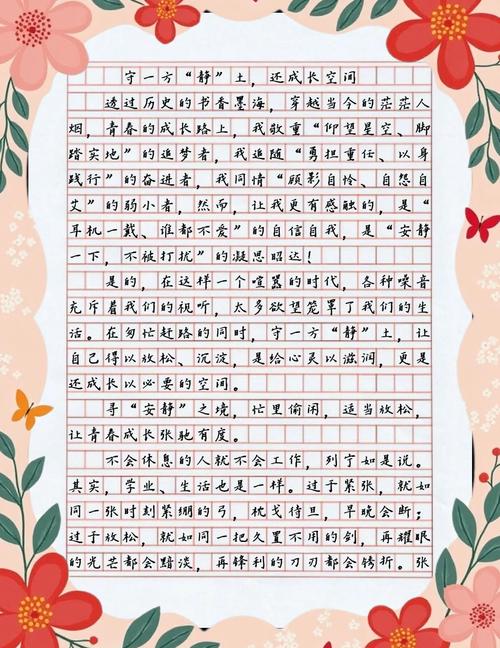 守一方“静”土，还成长空间
透过历史的书香墨海，穿越当今的茫茫人
烟，青春的成长路上，我敬重“仰望星空、脚
踏实地”的追梦者，我追随“勇担重任、以身
践行”的奋进者，我同情“顾影自怜、自怨自
艾”的弱小者，然而，让我更有感触的，是“
耳机一戴、谁都不爱”的自信自我，是“安静
一下，不被打扰”的凝思昭达！
是的，在这样一个喧嚣的时代，各种噪音
充斥着我们的视听，太多欲望笼罩了我们的生
活。在匆忙赶路的同时，守一方“静”土，让
自己得以放松、沉淀，是给心灵以滋润，更是
还成长以必要的空间。
寻“安静”之境，忙里偷闲，适当放松，
让青春成长张驰有度。
不会休息的人就不会工作，列宁如是说。
其实，学业、生活也是一样。过于紧张，就如
同一张时刻紧绷的弓，枕戈待旦，早晚会断；
过于放松，就如同一把久置不用的剑，再耀眼
的光芒都会黯淡，再锋利的刀刃都会锈折。张